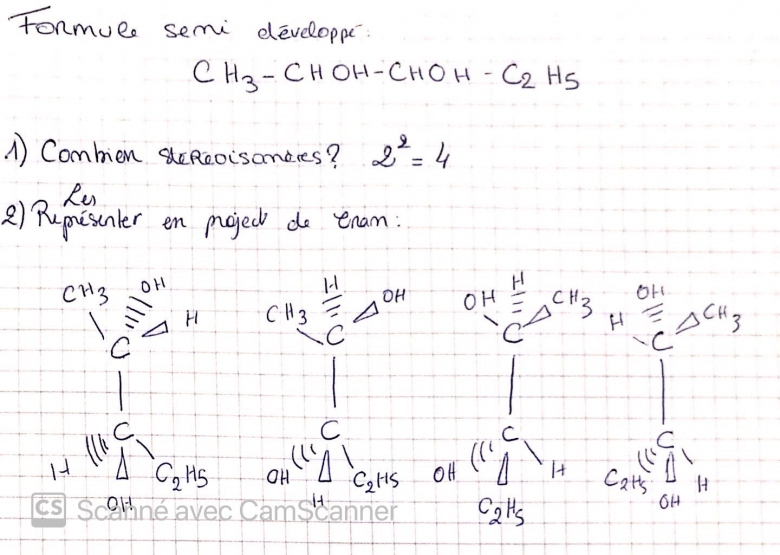 Formule semi développé:
CH3-CHOH-CHOH-C2H5
1) Combien stéréoisomères? 2² = 4
Les
2) Représenter en project de Cram:
CH3 OH H C
CH3 H OH C
OH H CH3 C
H OH CH3 C
H C C2H5 OH
OH C C2H5 H
OH C H C2H5
C2H5 C H OH
CS Scanné avec CamScanner